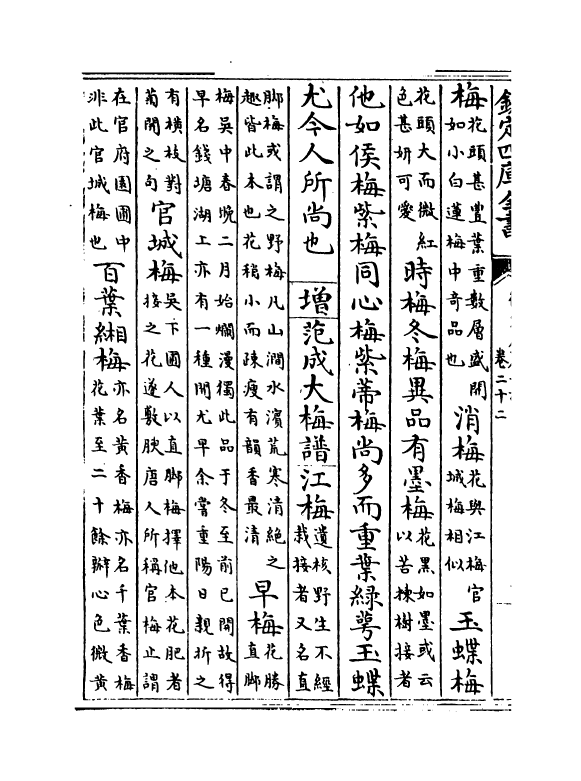 欽定四庫全書
卷二十二
梅花頭甚豐葉重數層盛開如小白蓮梅中奇品也消梅花與江梅官城梅相似玉蝶梅
花頭大而微紅色甚妍可愛時梅冬梅異品有墨梅花黑如墨或云以苦楝樹接者
他如侯梅紫梅同心梅紫蒂梅尚多而重葉緑萼玉蝶
尤今人所尚也 增 范成大梅譜江梅遺核野生不經栽接者又名直
脚梅或謂之野梅凡山澗水濱荒寒清絶之趣皆此本也花稍小而疎瘦有韻香最清早梅花勝直脚
梅吳中春晩二月始爛漫獨此品于冬至前已開故得早名錢塘湖上亦有一種開尤早余嘗重陽日親折之
有橫枝對菊開之句官城梅吳下圃人以直脚梅擇他本花肥者接之花遂敷腴唐人所稱官梅止謂
在官府園圃中非此官城梅也百葉緗梅亦名黄香梅亦名千葉香梅花葉至二十餘瓣心色微黄